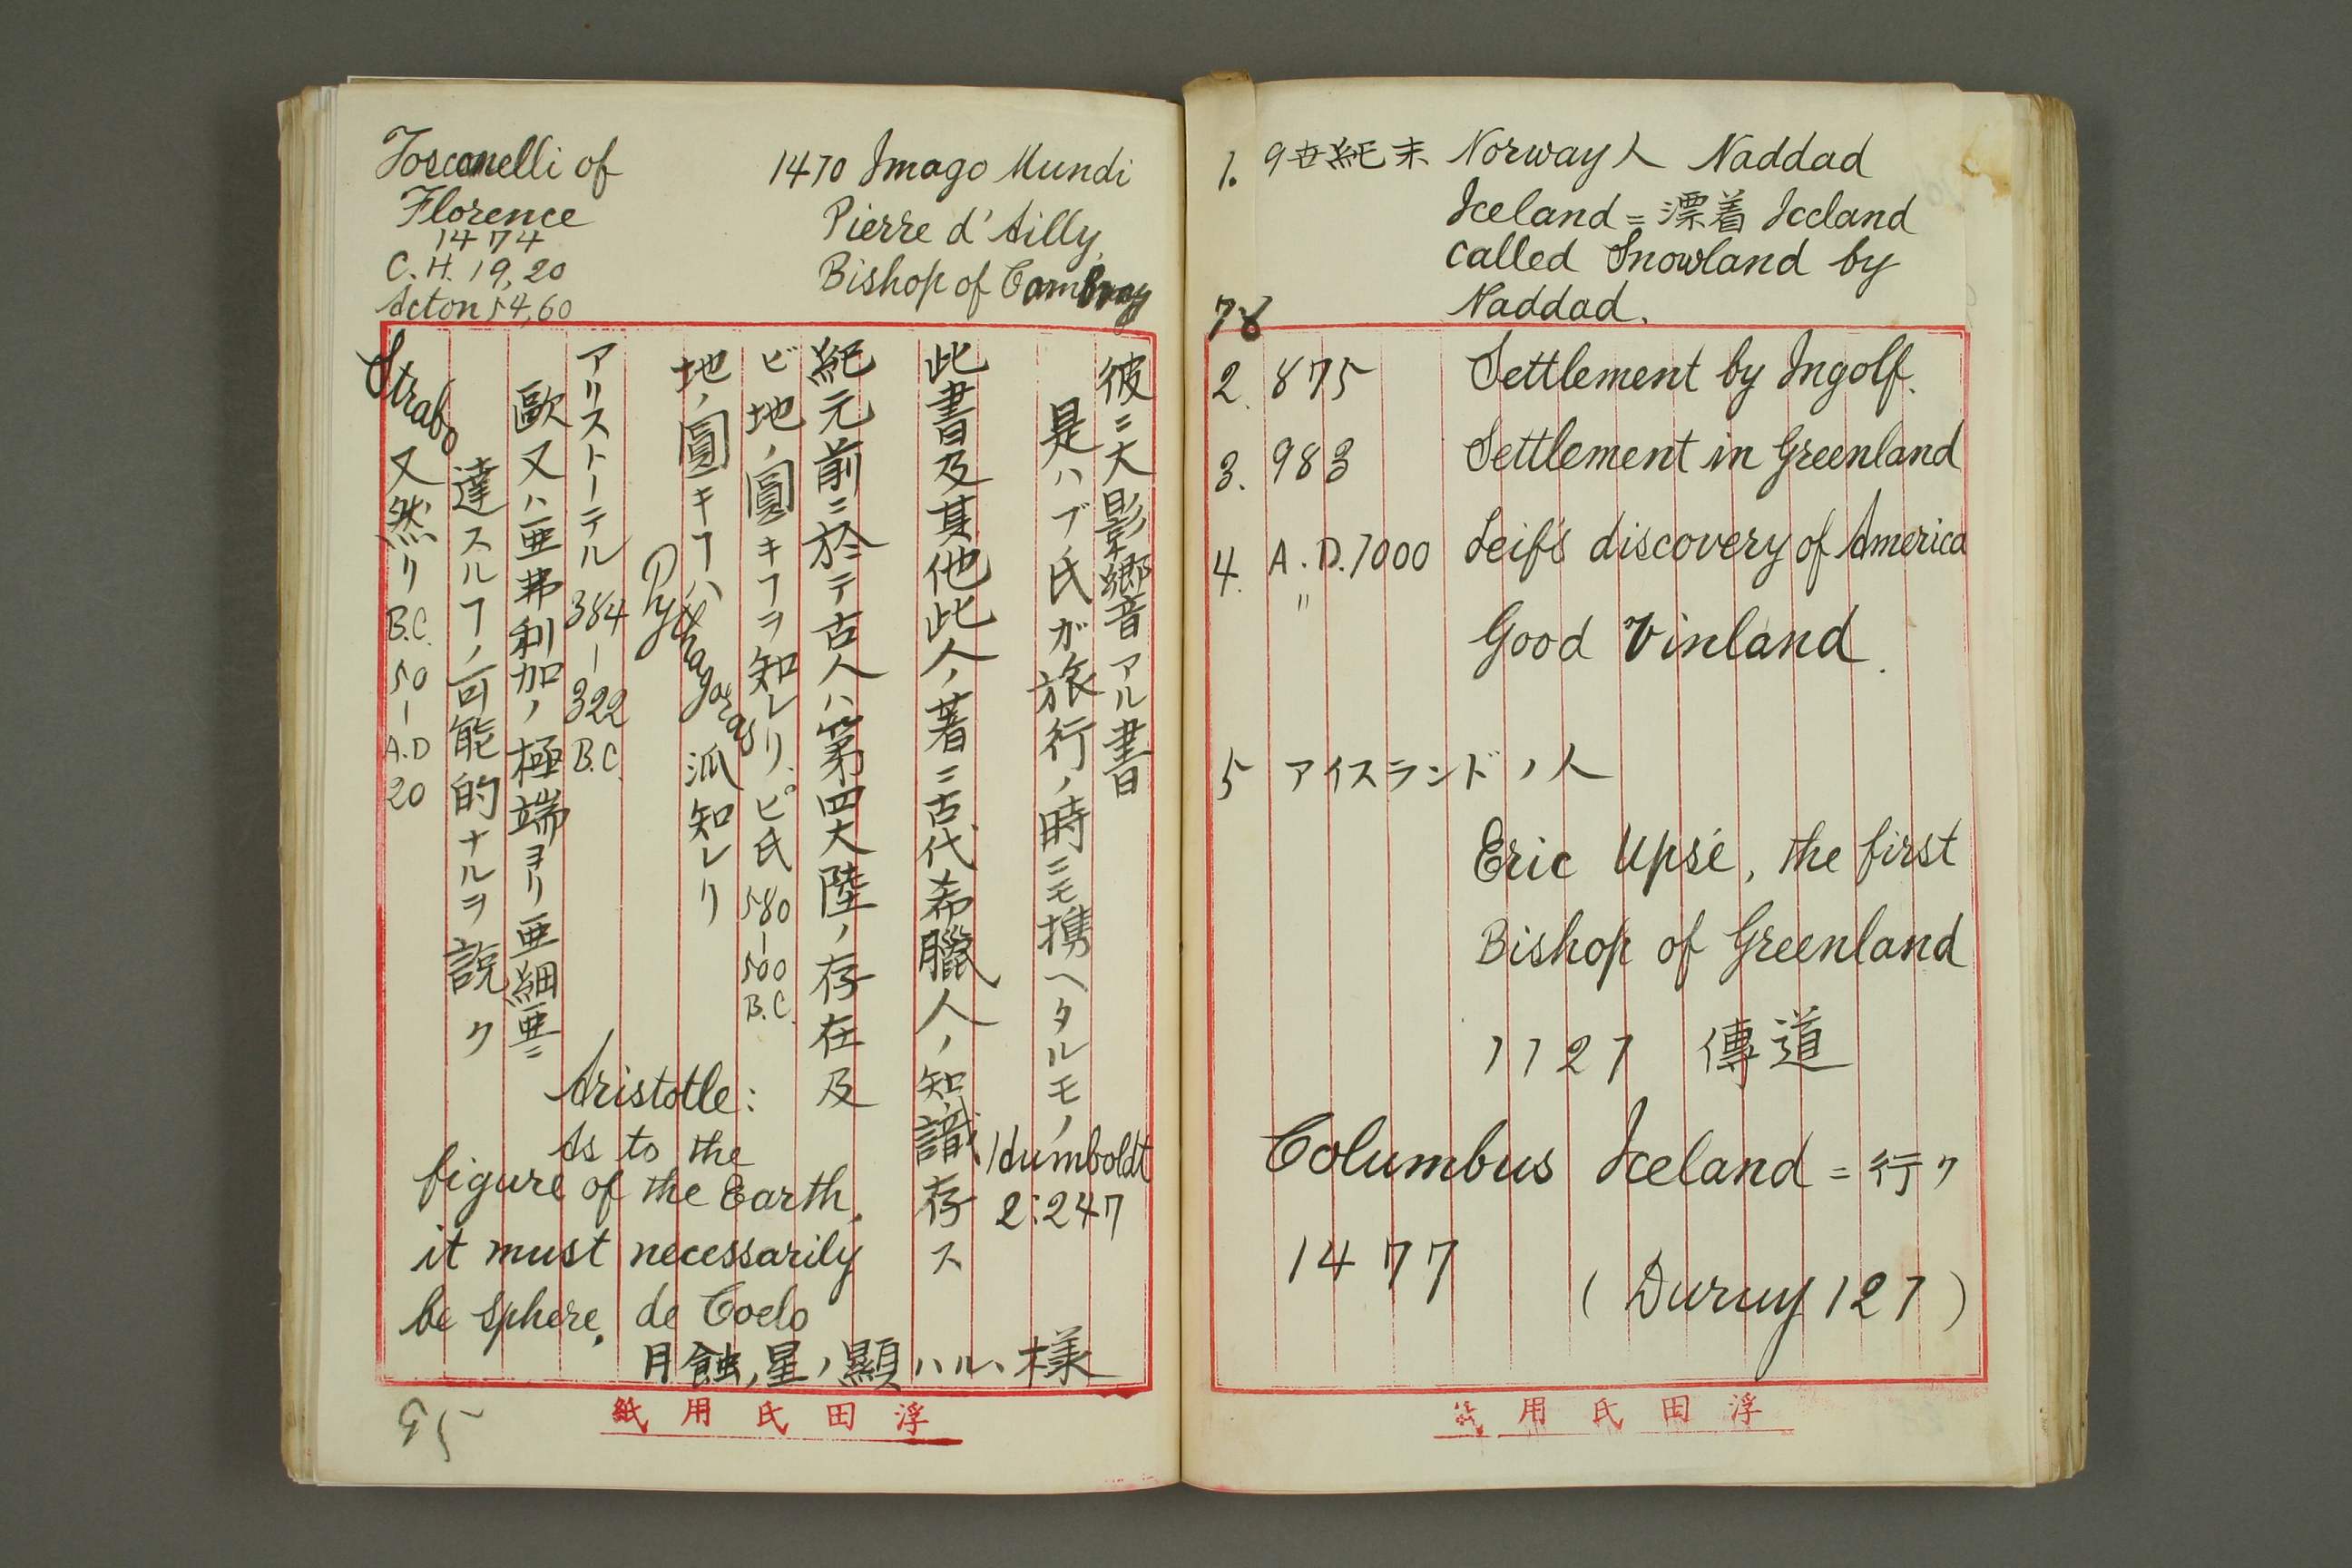 Toscanelli of
Florence
1474
C.H. 19,20
Acton 54,60
1410 Imago Mundi
Pierre d'Ailly,
Bishop of Cambray
彼ニ大影響アル書
是ハブ氏ガ旅行ノ時ニモ携ヘタルモノ
Humboldt
2:247
此書及其他此人ノ著ニ古代希臘人ノ知識存ス
紀元前ニ於テ古人ハ第四大陸ノ存在及
ビ地ノ圓キヿヲ知レリ、ピ氏 580-500 B.C.
地ノ圓キヿハ Pythagoras 派知レリ
アリストーテル 384-322 B.C.
歐又ハ亜弗利加ノ極端ヨリ亜細亜ニ
達スルヿノ可能的ナルヲ說ク
Strabo 又然リ B.C. 50-A.D 20
Aristotle:
As to the
figure of the Earth,
it must necessarily
be sphere. de Coelo
月蝕、星ノ顯ハルヽ様
浮田氏用紙
1. 9世紀末 Norway人 Naddad
Iceland=漂着 Iceland
called Snowland by
Naddad.
2. 875 Settlement by Ingolf.
3. 983 Settlement in Greenland
4. A.D.1000 Leif's discovery of America
" Good Vinland.
5 アイスランドノ人
Eric Upsé, the first
Bishop of Greenland
1121 傳道
Columbus Iceland=行ク
1477
(Duruy 121)
浮田氏用紙